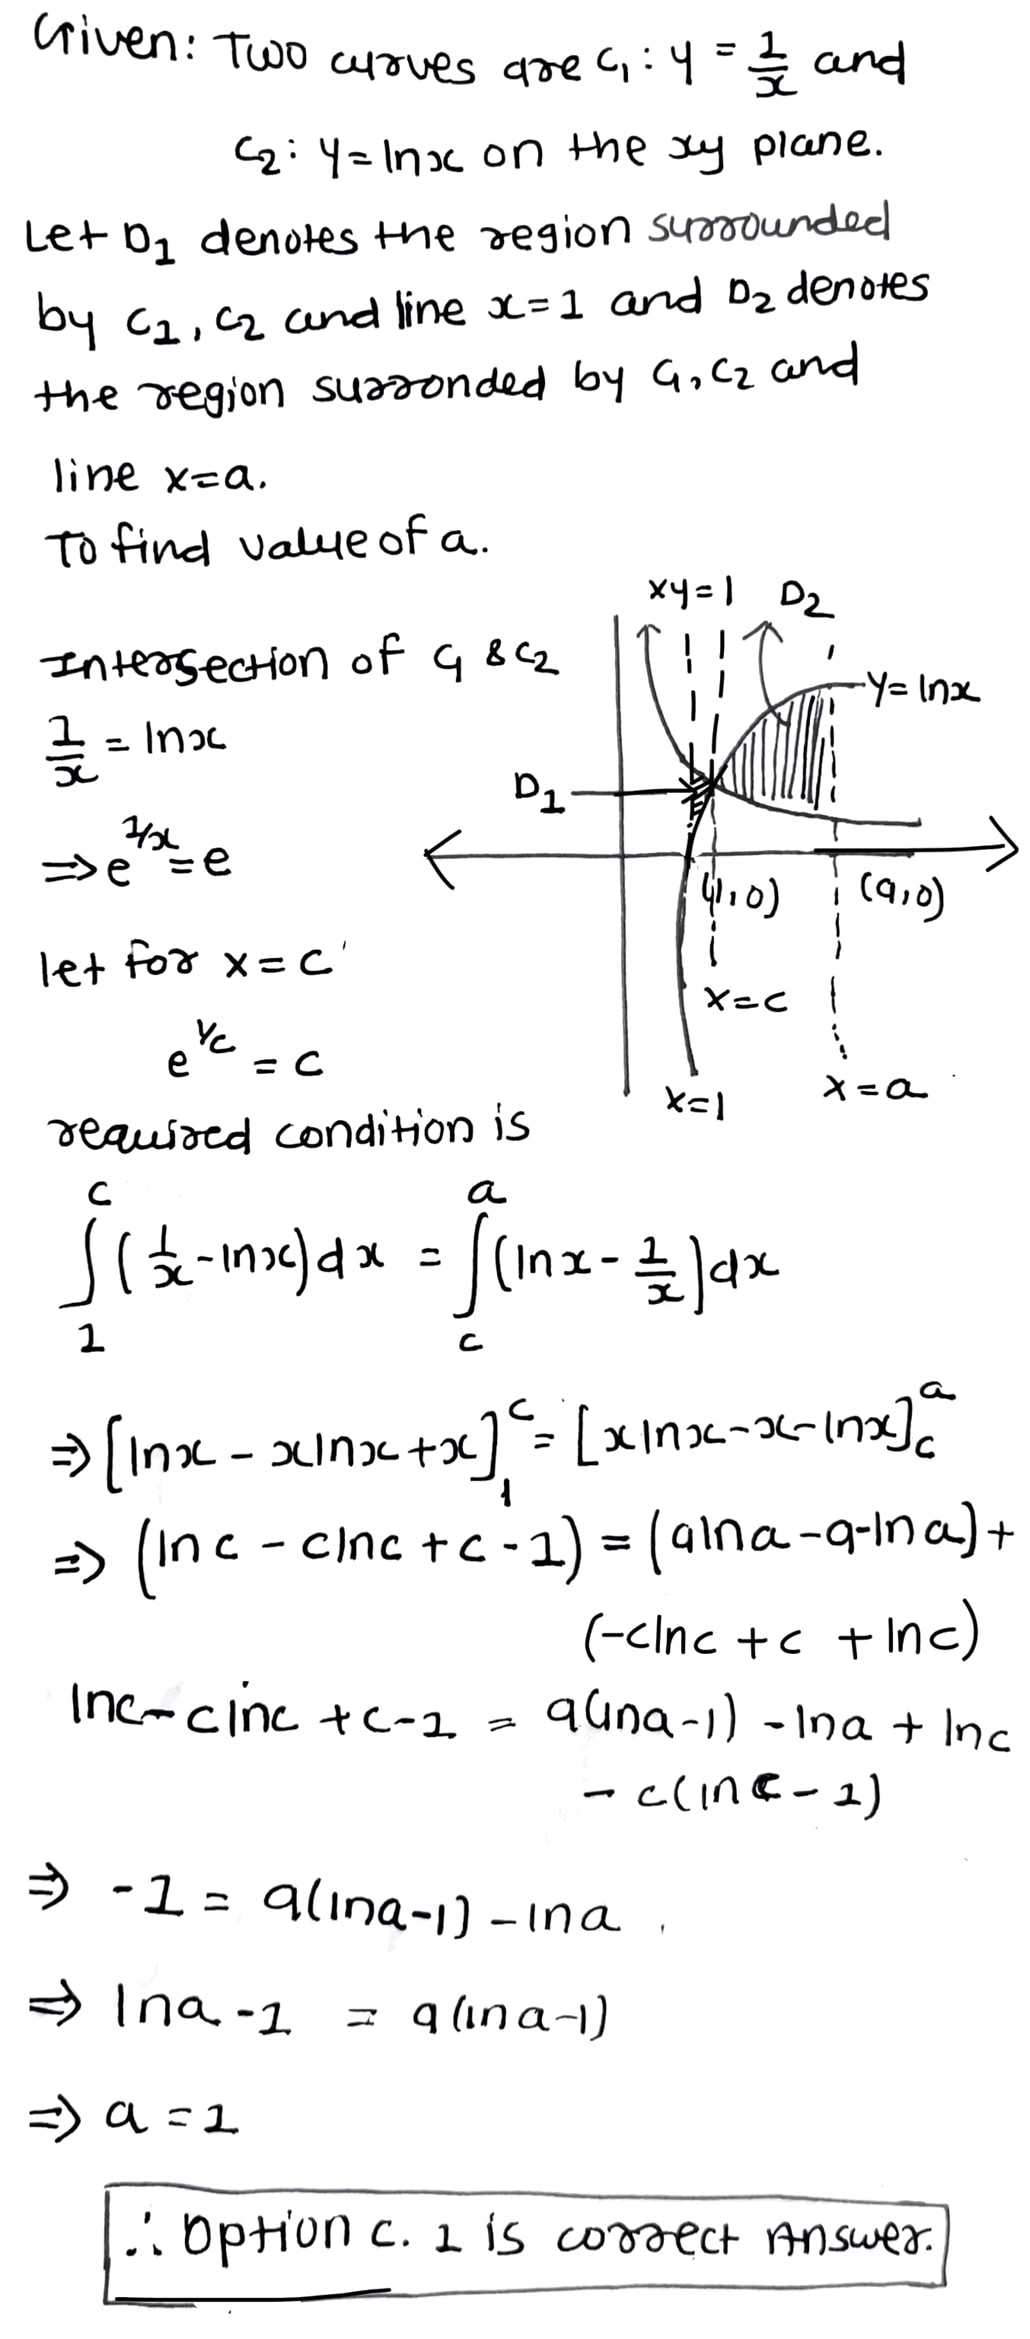 Given: Two curves are C₁ : y = 1/x and
C₂ : y = lnx on the xy plane.
Let D₁ denotes the region surrounded
by C₁, C₂ and line x=1 and D₂ denotes
the region surronded by C₁, C₂ and
line x=a.
To find value of a.
Intersection of C₁ & C₂
1/x = lnx
⇒ e^(1/x) = e
let for x = c'
e^(1/c) = c
xy=1 D₂
y= lnx
D₁
(1,0) (a,0)
x=c
x=1 x=a
required condition is
∫₁^c (1/x - lnx)dx = ∫_c^a (lnx - 1/x)dx
⇒ [lnx - xlnx + x]₁^c = [xlnx - x - lnx]_c^a
⇒ (lnc - clnc + c - 1) = (alna - a - lna) +
(-clnc + c + lnc)
lnc - clnc + c - 1 = a(lna-1) - lna + lnc
- c(lnc - 1)
⇒ -1 = a(lna-1) - lna
⇒ lna - 1 = a(lna-1)
⇒ a = 1
∴ Option c. 1 is correct Answer.